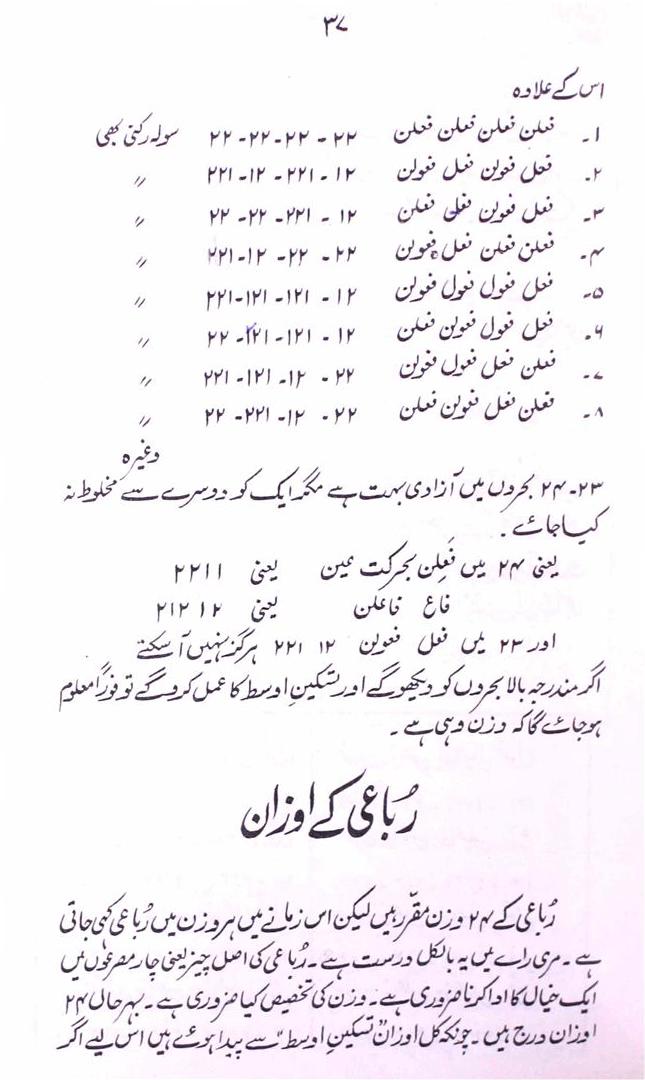 ۳۷
اس کے علاوہ
۱۔ فعلن فعلن فعلن فعلن ۲۲ - ۲۲ - ۲۲ - ۲۲ سولہ رکنی بھی
۲۔ فعل فعولن فعل فعولن ۱۲ - ۲۲۱ - ۱۲ - ۲۲۱ 〃
۳۔ فعل فعولن فعلن فعلن ۱۲ - ۲۲۱ - ۲۲ - ۲۲ 〃
۴۔ فعلن فعلن فعل فعولن ۲۲ - ۲۲ - ۱۲ - ۲۲۱ 〃
۵۔ فعل فعول فعول فعولن ۱۲ - ۱۲۱ - ۱۲۱ - ۲۲۱ 〃
۶۔ فعل فعول فعولن فعلن ۱۲ - ۱۲۱ - ۲۲۱ - ۲۲ 〃
۷۔ فعلن فعل فعول فعولن ۲۲ - ۱۲ - ۱۲۱ - ۲۲۱ 〃
۸۔ فعلن فعل فعولن فعلن ۲۲ - ۱۲ - ۲۲۱ - ۲۲ 〃
وغیرہ
۲۳ - ۲۴ بحروں میں آزادی بہت ہے مگر ایک کو دوسرے سے مخلوط نہ
کیا جائے ۔
یعنی ۲۴ میں فَعِلن بحرکت عین یعنی ۲۲۱۱
فاع فاعلن یعنی ۱۲ ۲۱۲
اور ۲۳ میں فعل فعولن ۱۲ ۲۲۱ ہرگز نہیں آ سکتے
اگر مندرجہ بالا بحروں کو دیکھو گے اور تسکینِ اوسط کا عمل کرو گے تو فوراً معلوم
ہو جائے گا کہ وزن وہی ہے ۔
رُباعی کے اوزان
رُباعی کے ۲۴ وزن مقرّر ہیں لیکن اس زمانے میں ہر وزن میں رُباعی کہی جاتی
ہے ۔ مری رائے میں یہ بالکل درست ہے ۔ رُباعی کی اصل چیز یعنی چار مصرعوں میں
ایک خیال کا ادا کرنا ضروری ہے ۔ وزن کی تخصیص کیا ضروری ہے ۔ بہر حال ۲۴
اوزان درج ہیں ۔ چونکہ کل اوزان "تسکینِ اوسط" سے پیدا ہوئے ہیں اس لیے اگر